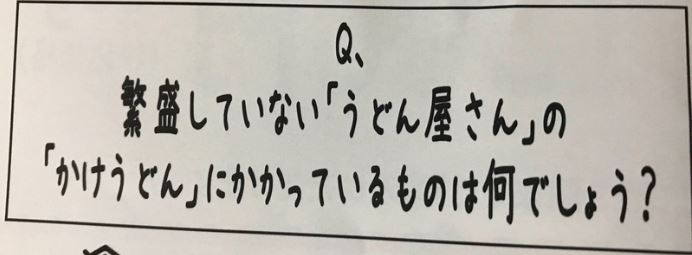 Q、
繁盛していない「うどん屋さん」の
「かけうどん」にかかっているものは何でしょう？